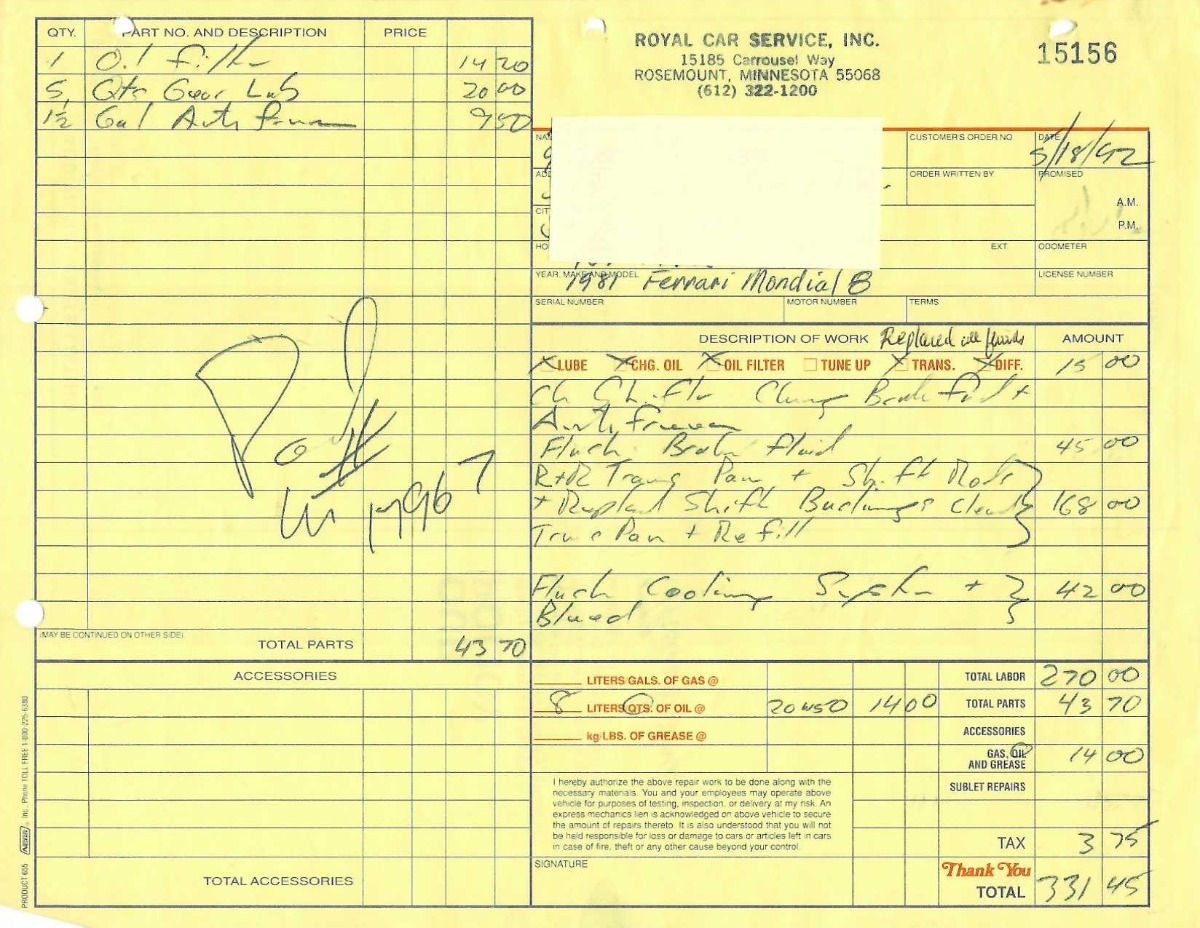 QTY. PART NO. AND DESCRIPTION PRICE
1 Oil Filter 14 20
5 Qts Gear Lub 20 00
1½ Gal Antifreeze 9 50
Paid
1796
(MAY BE CONTINUED ON OTHER SIDE) TOTAL PARTS 43 70
ACCESSORIES
TOTAL ACCESSORIES
PRODUCT 655 NEBS Inc. Phone TOLL FREE 1-800-225-6380
ROYAL CAR SERVICE, INC.
15185 Carrousel Way
ROSEMOUNT, MINNESOTA 55068
(612) 322-1200
15156
CUSTOMER'S ORDER NO. DATE 5/18/92
ORDER WRITTEN BY PROMISED
A.M.
P.M.
EXT ODOMETER
YEAR, MAKE AND MODEL 1981 Ferrari Mondial 8 LICENSE NUMBER
SERIAL NUMBER MOTOR NUMBER TERMS
DESCRIPTION OF WORK Replaced all fluids AMOUNT
LUBE CHG. OIL OIL FILTER TUNE UP TRANS. DIFF. 15 00
Antifreeze
Flush Brake Fluid 45 00
R+R Trans Pan + Shift Rods
+ Replad Shift Bushings Clean 168 00
Trans Pan + Refill
Flush Cooling System + 42 00
Bleed
LITERS GALS. OF GAS @ TOTAL LABOR 270 00
8 LITERS QTS. OF OIL @ 20W50 14 00 TOTAL PARTS 43 70
kg LBS. OF GREASE @ ACCESSORIES
GAS, OIL AND GREASE 14 00
SUBLET REPAIRS
I hereby authorize the above repair work to be done along with the
necessary materials. You and your employees may operate above
vehicle for purposes of testing, inspection, or delivery at my risk. An
express mechanics lien is acknowledged on above vehicle to secure
the amount of repairs thereto. It is also understood that you will not
be held responsible for loss or damage to cars or articles left in cars
in case of fire, theft or any other cause beyond your control.
TAX 3 75
SIGNATURE
Thank You
TOTAL 331 45